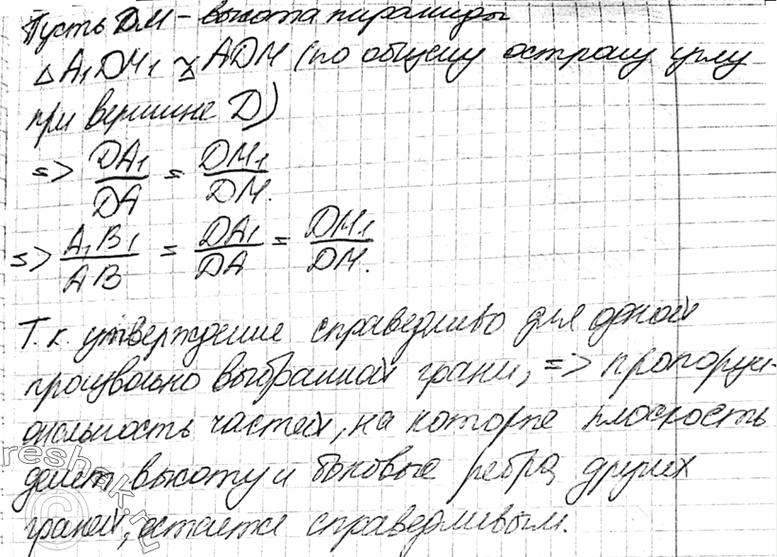 Пусть DM – высота пирамиды
△ A₁DM₁ ∾ ADM (по общему острому углу
при вершине D)
=> DA₁/DA = DM₁/DM.
=> A₁B₁/AB = DA₁/DA = DM₁/DM.
Т.к. утверждение справедливо для одной
произвольно выбранной грани, => пропорци-
ональность частей, на которые плоскость
делит высоту и боковые ребра других
граней, остается справедливым.
reshak.ru